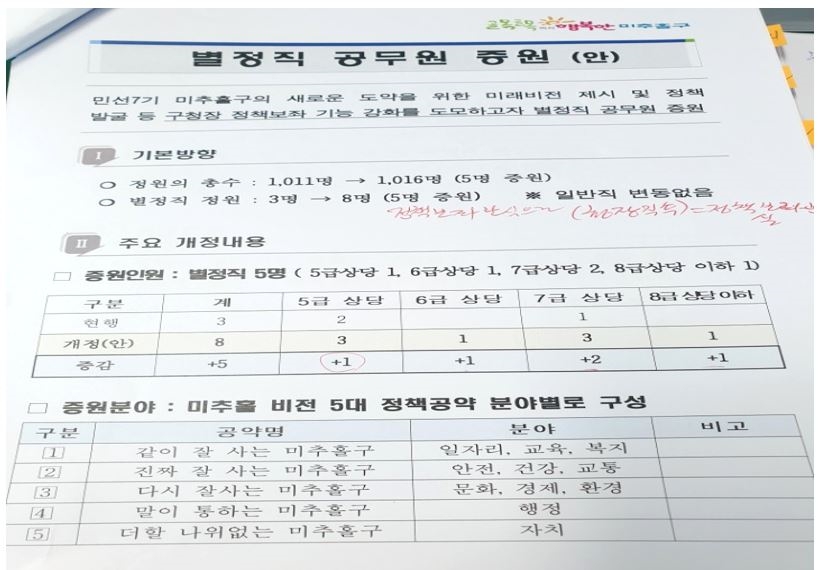 교육특구 행복한 미추홀구
별정직 공무원 증원 (안)
민선7기 미추홀구의 새로운 도약을 위한 미래비전 제시 및 정책
발굴 등 구청장 정책보좌 기능 강화를 도모하고자 별정직 공무원 증원
Ⅰ 기본방향
○ 정원의 총수 : 1,011명 → 1,016명 (5명 증원)
○ 별정직 정원 : 3명 → 8명 (5명 증원) ※ 일반직 변동없음
Ⅱ 주요 개정내용
□ 증원인원 : 별정직 5명 ( 5급상당 1, 6급상당 1, 7급상당 2, 8급상당 이하 1)
구분 계 5급 상당 6급 상당 7급 상당 8급상당이하
현행 3 2 1
개정(안) 8 3 1 3 1
증감 +5 +1 +1 +2 +1
□ 증원분야 : 미추홀 비전 5대 정책공약 분야별로 구성
구분 공약명 분야 비고
1 같이 잘 사는 미추홀구 일자리, 교육, 복지
2 진짜 잘 사는 미추홀구 안전, 건강, 교통
3 다시 잘사는 미추홀구 문화, 경제, 환경
4 말이 통하는 미추홀구 행정
5 더할 나위없는 미추홀구 자치